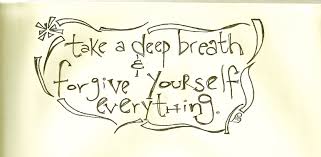 take a deep breath
&
forgive yourself
everything.